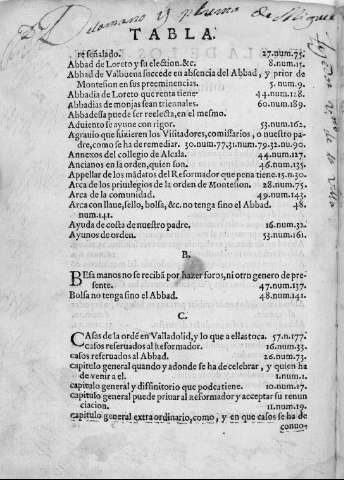 TABLA.
re señalado. 27.num.75.
Abbad de Loreto y su election.&c. 8.num.15.
Abbad de Valbuena succede en absencia del Abbad, y prior de
Montesion en sus preeminencias. 5.num.9.
Abbadia de Loreto que renta tiene 44.num.128.
Abbadias de monjas sean triennales. 60.num.189.
Abbadessa puede ser reelecta, en el mesmo.
Aduiento se ayune con rigor. 53.num.162.
Agrauio que hizieren los Visitadores, comissarios, o nuestro pa-
dre, como se ha de remediar. 30.num.77.31.num.79.32.nu.90.
Annexos del collegio de Alcala. 44.num.127.
Ancianos en la orden, quien son. 46.num.135.
Appellar de los mãdatos del Reformador que pena tiene. 15.n.30.
Arca de los priuilegios de la orden de Montesion. 28.num.75.
Arca de la comunidad. 49.num.143.
Arca con llaue, sello, bolsa, &c. no tenga sino el Abbad. 48.
num.141.
Ayuda de costa de nuestro padre. 16.num.32.
Ayunos de orden. 53.num.161.
B.
BEsa manos no se recibã por hazer foros, ni otro genero de pre-
sente. 47.num.137.
Bolsa no tenga sino el Abbad. 48.num.141.
C.
CAsas de la ordẽ en Valladolid, y lo que a ellas toca. 57.n.177.
casos reseruados al Reformador. 16.num.33.
casos reseruados al Abbad. 26.num.73.
capitulo general quando y adonde se ha de celebrar, y quien ha
de venir a el. 1.num.1.
capitulo general y diffinitorio que podea tiene. 10.num.17.
capitulo general puede priuar al Reformador y acceptar su renun
ciacion. 11.num.19.
capitulo general extraordinario, como, y en que casos se ha de
conuo-